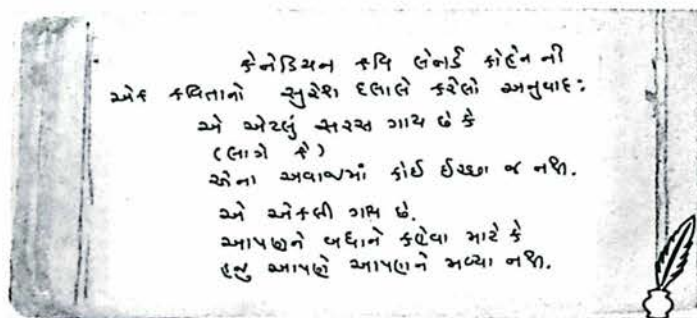 કેનેડિયન કવિ લેનર્ડ કોહેન ની
એક કવિતાનો સુરેશ દલાલે કરેલો અનુવાદ:
એ એટલું સરસ ગાય છે કે
(લાગે કે)
એના અવાજમાં કોઈ ઈચ્છા જ નથી.
એ એકલી ગાય છે.
આપણને બધાને કહેવા માટે કે
હજુ આપણે આપણને મળ્યા નથી.